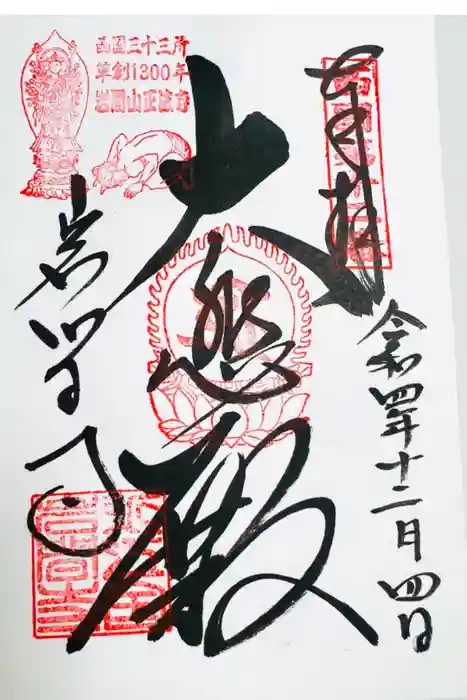 奉拝
西国第十二番
令和四年十二月四日
大悲殿
西国三十三所
草創1300年
岩間山正法寺
岩間寺